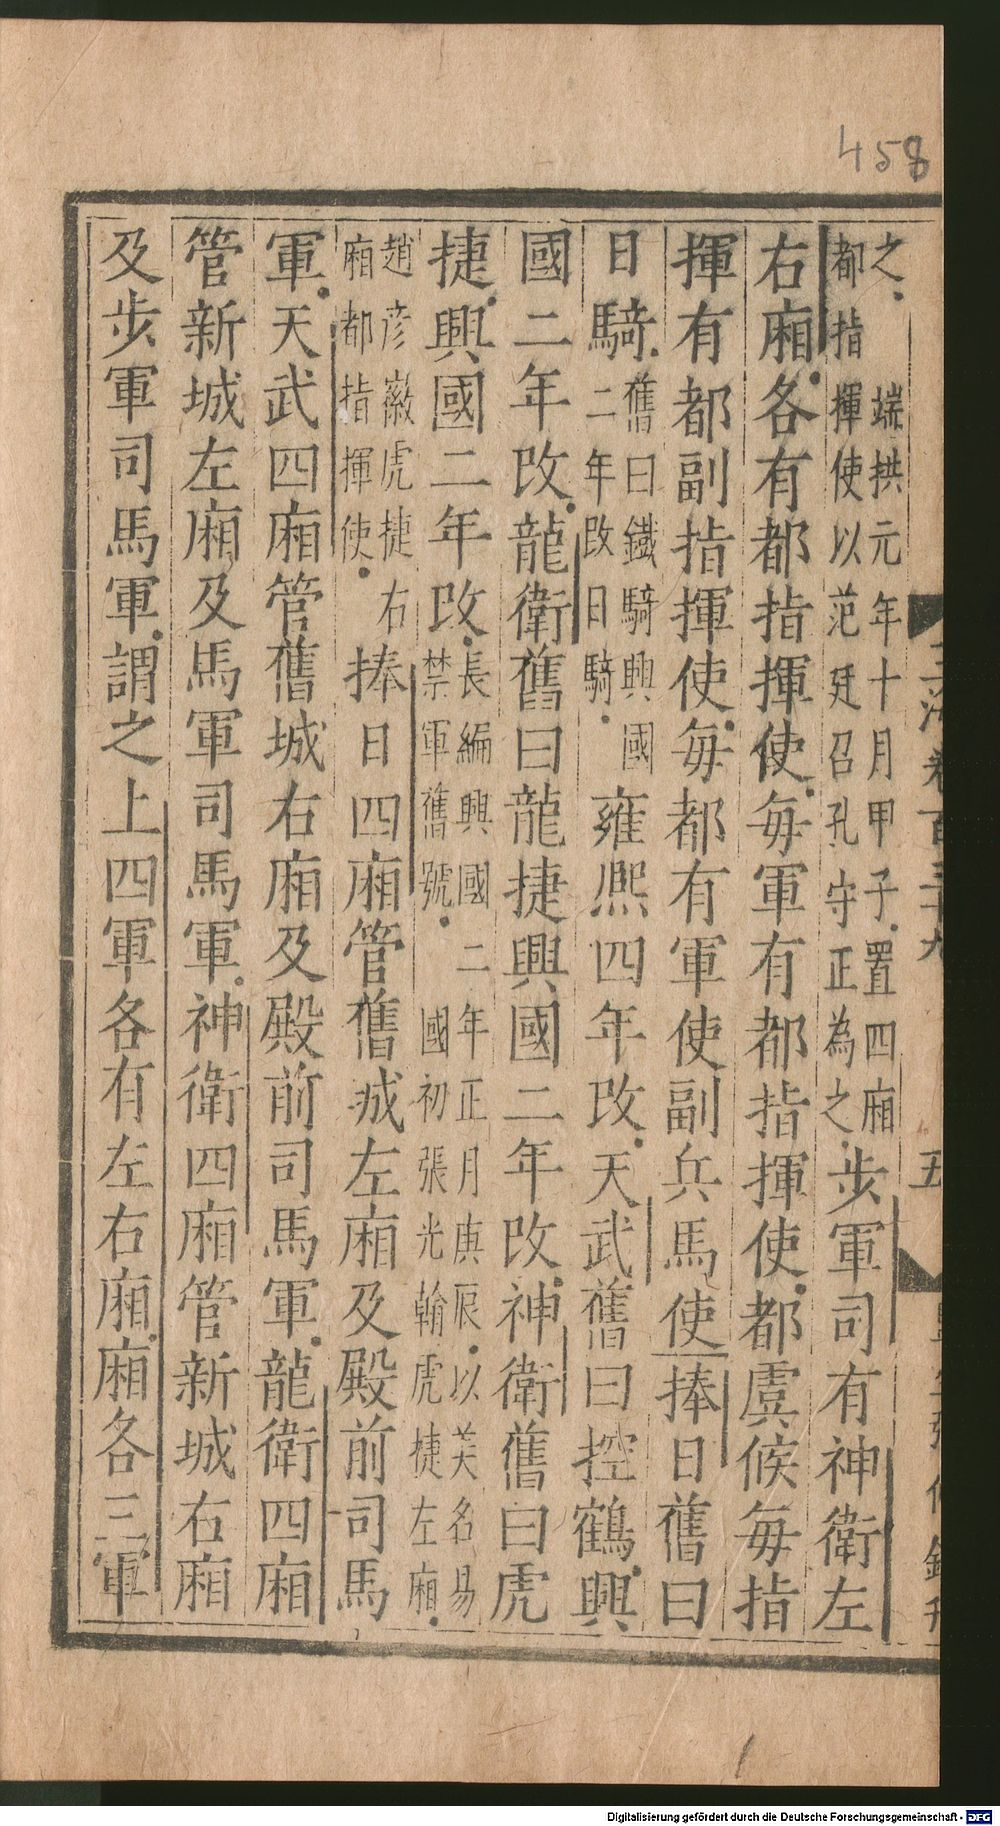 458
卷百三十九
五
之 端拱元年十月甲子置四廂
都指揮使以范廷召孔守正為之
步軍司有神衛左
右廂各有都指揮使每軍有都指揮使都虞候每指
揮有都副指揮使每都有軍使副兵馬使捧日舊曰
日騎
舊曰鐵騎興國
二年改日騎
雍熙四年改天武舊曰控鶴興
國二年改龍衛舊曰龍捷興國二年改神衛舊曰虎
捷興國二年改
長編興國二年正月庚辰以美名易
禁軍舊號 國初張光翰虎捷左廂
趙彥徽虎捷右
廂都指揮使
捧日四廂管舊城左廂及殿前司馬
軍天武四廂管舊城右廂及殿前司馬軍龍衛四廂
管新城左廂及馬軍司馬軍神衛四廂管新城右廂
及步軍司馬軍謂之上四軍各有左右廂廂各三軍
Digitalisierung gefördert durch die Deutsche Forschungsgemeinschaft - DFG